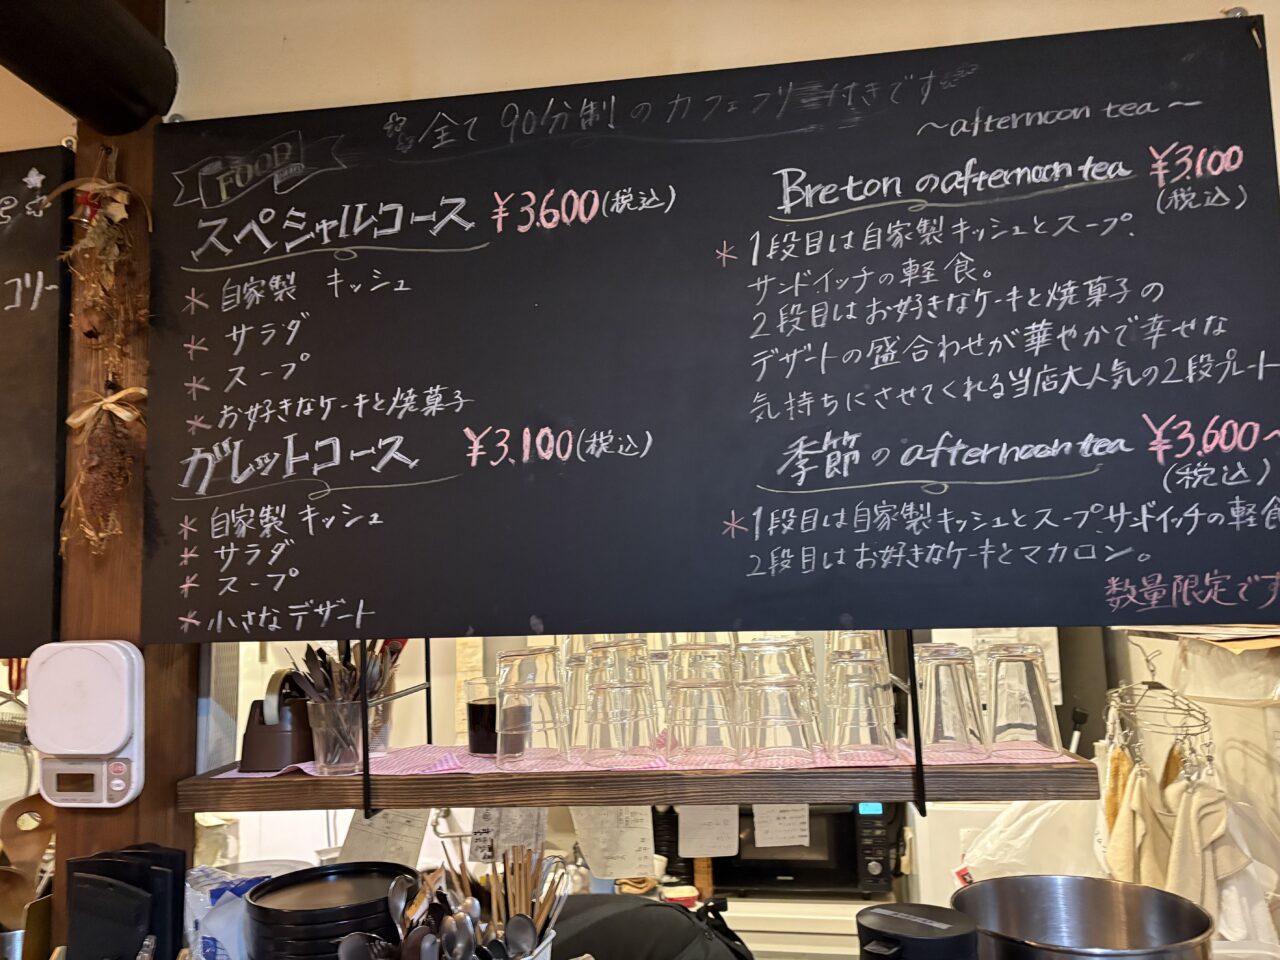 全て90分制のカフェフリー付きです
FOOD
スペシャルコース ¥3.600(税込)
* 自家製 キッシュ
* サラダ
* スープ
* お好きなケーキと焼菓子
ガレットコース ¥3.100(税込)
* 自家製 キッシュ
* サラダ
* スープ
* 小さなデザート
〜afternoon tea〜
Bretonのafternoon tea ¥3.100
(税込)
* 1段目は自家製キッシュとスープ、
サンドイッチの軽食。
2段目はお好きなケーキと焼菓子の
デザートの盛合わせが華やかで幸せな
気持ちにさせてくれる当店大人気の2段プレート
季節のafternoon tea ¥3.600〜
(税込)
* 1段目は自家製キッシュとスープ、サンドイッチの軽食
2段目はお好きなケーキとマカロン。
数量限定です
コリー